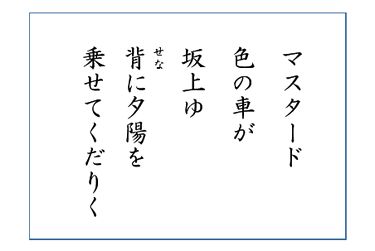 マスタード
色の車が
坂上ゆ
背に夕陽を
せな
乗せてくだりく